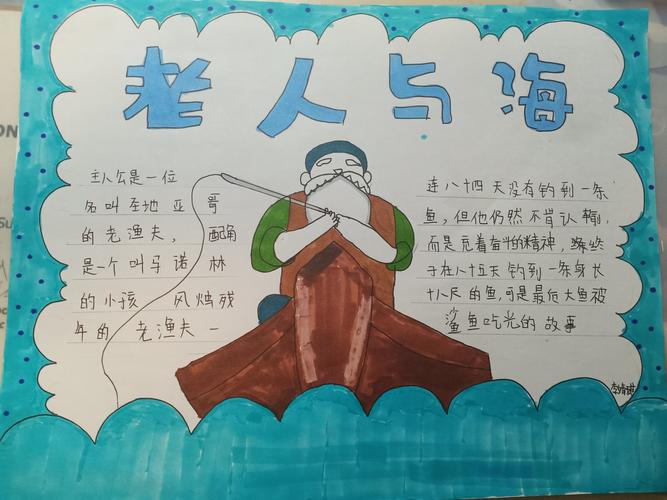 老人与海
主人公是一位
名叫圣地亚哥
的老渔夫，配角
是一个叫马诺林
的小孩 风烛残
年的老渔夫一
连八十四天没有钓到一条
鱼，但他仍然不肯认输，
而是充着奋斗的精神，终
于在八十五天钓到一条身长
十八尺的鱼，可是最后大鱼被
鲨鱼吃光的故事